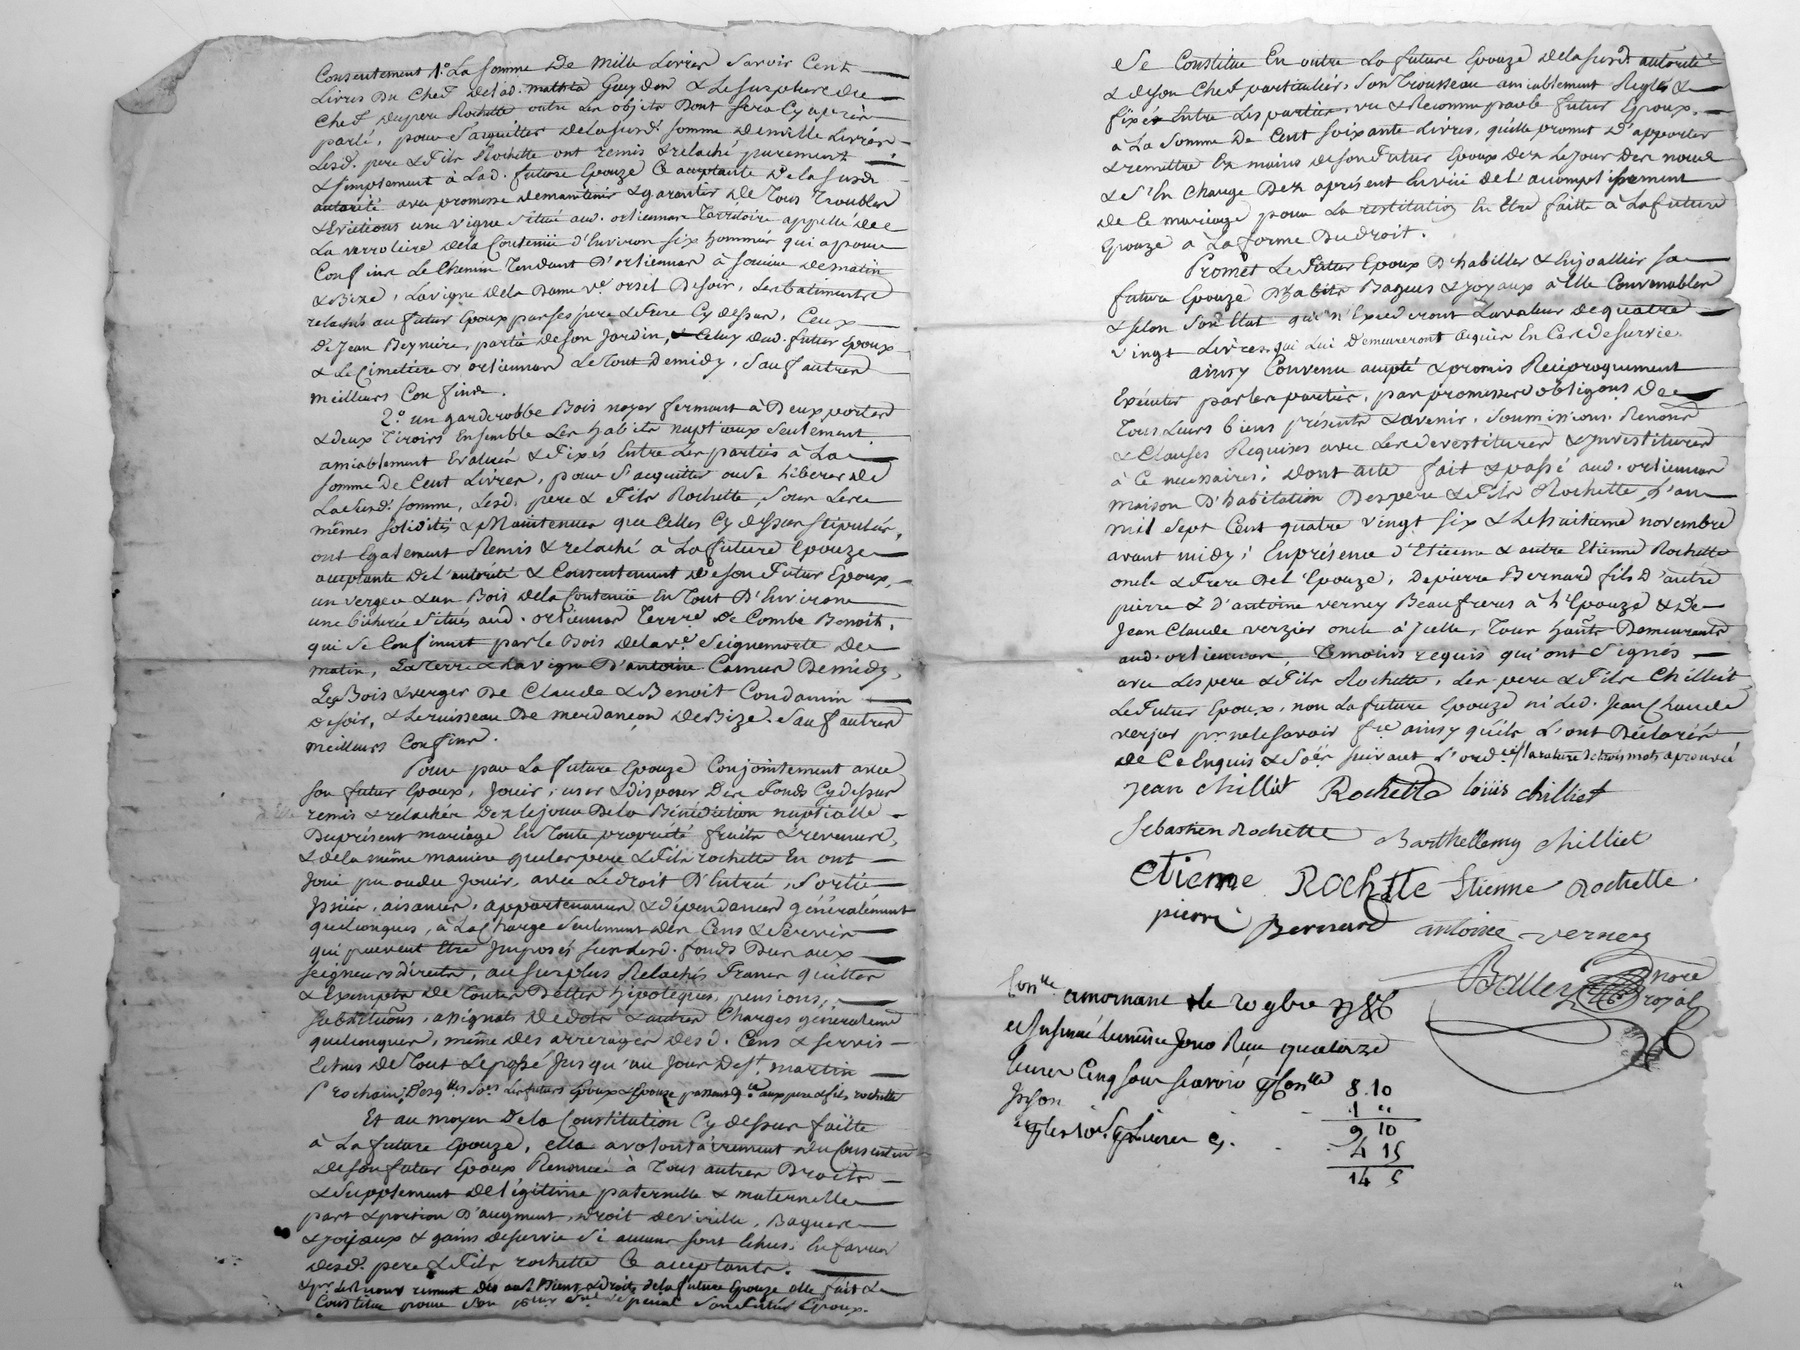 Consentement 1.° La somme De mille Livres Savoir Cent
Livres Du Chef delad. mathta Guydon & Le surplus du
Chef dupere Rochette outre Les objets Dont sera Cy après
parlé, pour s'acquitter delasusd. somme demille Livres
Lesd. pere & fils Rochette ont remis & relaché purement
& simplement à Lad. future Epouze Ce acceptante De la susd.
autorité avec promesse demaintenir & garantir De Tous Troubles
& Evictions une vigne situé aud. orliennas Territoire appellé de
La verrolière dela Contenüe d'Environ six hommés qui a pour
Confins Le Chemin Tendant D'orliennas à soucieu dematin
& Bize, Lavigne dela Dame ve. orsel Desoir, Les batiments
relachés au futur Epoux par ses pere & frere Cy dessus, Ceux
De Jean Beyniere, partie deson Jardin, & Celuy dud. futur Epoux
& Le Cimetiere d'orliennas LeTout Demidy, Sauf autres
meilleurs Confins.
2.° un garderobbe Bois noyer fermant à Deux portes
& deux Tiroirs Ensemble Les habits nuptiaux seulement
amiablement Evalués & Fixés Entre Les parties à La
somme De Cent Livres, pour s'acquitter ouSe liberer de
Lasusd. somme, Lesd. pere & Fils Rochette, Sous Les
mêmes soliditės & Maintenues que Celles Cy dessus stipulés,
ont Egalement Remis & relaché à La future Epouze
acceptante del'autorité & Consentement DesonFutur Epoux,
un verger & un Bois dela Contenüe En Tout D'Environ
une bicherée Situés aud. orliennas Terrre. De Combe Benoit,
qui se Confinent par le Bois delave. Seignemorte De
matin, La Terre & La vigne D'antoine Camus Demidy,
Les Bois & verger De Claude & Benoit Condamin
Desoir, & Le ruisseau De merdançon DeBize. Sauf autres
meilleurs Confins.
Pour par La future Epouze Conjointement avec
son futur Epoux, Jouir, user & disposer Des Fonds Cydessus
remis & relachés Dez lejour Dela Bénédiction nuptialle
Duprésent mariage En Toute propriété fruits & revenus,
& dela même maniere que les pere & Fils rochette En ont
Joui pu oudu Jouir, avec Le droit D'Entrée, sortie
Issües, aisances, appartenances & dépendances généralement
quelconques, à La Charge Seulement des Cens & Servis
qui peuvent Etre Imposés sur Lesd. fonds Dus aux
seigneurs directs, au surplus Relachés Francs quittes
& Exempts De Toutes Dettes hipotèques, pensions,
substitutions, assignats Dedots & autres Charges généralemt
quelconques, même des arrerages desd. Cens & servis
Echus deTout Lepassé Jusqu'au Jour Dest. martin
Prochain, Les futurs Epoux & Epouze passent aux pere & fils rochette
Et au moyen Dela Constitution Cy dessus faitte
à La future Epouze, Elle a volontairement du Consentemt
Desonfutur Epoux Renoncé à Tous autres Droits
& Supplement De Légitime paternelle & maternelle
part & portion D'augment, Droit de virille, Bagues
& joyaux & gains desurvie Si aucuns sont Echus, En faveur
desd. pere & Fils rochette Ce acceptants.
Des & Droits dela future Epouze elle fait &
Constitue pour Son Sond. futur Epoux.
Se Constitue En outre La future Epouze delasusd. autorité
& deson Chef particulier, Son Trousseau amiablement Reglé &
fixés Entre Les parties, vu & Reconnu parle futur Epoux.
à La Somme De Cent soixante Livres, qu'elle promet D'apporter
& remettre Es mains desonFutur Epoux dez LeJour Des noces
& S'En Charge Dez àprésent Envüe del'accomplissement
de Ce mariage pour La restitution En Etre faitte à Lafuture
Epouze à La forme Dudroit.
Promet Le Futur Epoux D'habiller & Enjoallier sa
future Epouze D'habits Bagues & joyaux à Elle Convenables
& selon Son Etat qui n'Excederont Lavaleur dequatre
vingt Livres, qui Lui Demeureront acquis En Cas de survie.
ainsy Convenu accepté & promis Réciproquement
Exécuter par Les parties, par promesses obligons De
Tous Leurs biens présents & avenir, Soumissions, Renons
& Clauses Requises avec Les devestitures & Investitures
à Ce necessaires; dont acte fait & passé aud. orliennas
maison D'habitation Des pere & Fils Rochette, L'an
mil sept Cent quatre vingt six & Le huitieme novembre
avant midy; Enprésence d'Etienne & autre Etienne Rochette
oncle & Frere Del'Epouze, Depierre Bernard fils D'autre
pierre & d'antoine verney Beaufreres à L'Epouze & De
Jean Claude verzier oncle à Jcelle, Tous habts Demeurants
aud. orliennas, Témoins requis qui ont Signés
avec Les pere & Fils Rochette, Les pere & Fils Chilliet
Le Futur Epoux, non La future Epouze ni Led. Jean Claude
verzier pr. nelesavoir fre. ainsy qu'ils L'ont Déclarés
de Ce Enquis & Soés suivant L'ordce. / La rature De trois mots aprouvée
Jean chilliet Rochette loüis chilliet
Sebastien Rochette Barthellemy chilliet
Etienne Rochette Etienne Rochette
pierre Bernard antoine verney
Balley nore royal
Conlle amornant le 20 9bre
et Insinué lemême Jour Reçu quatorze
livres Cinq sous scavoir pr Conlle 8. 10
Inson 1 "
9 10
4 15
14 5